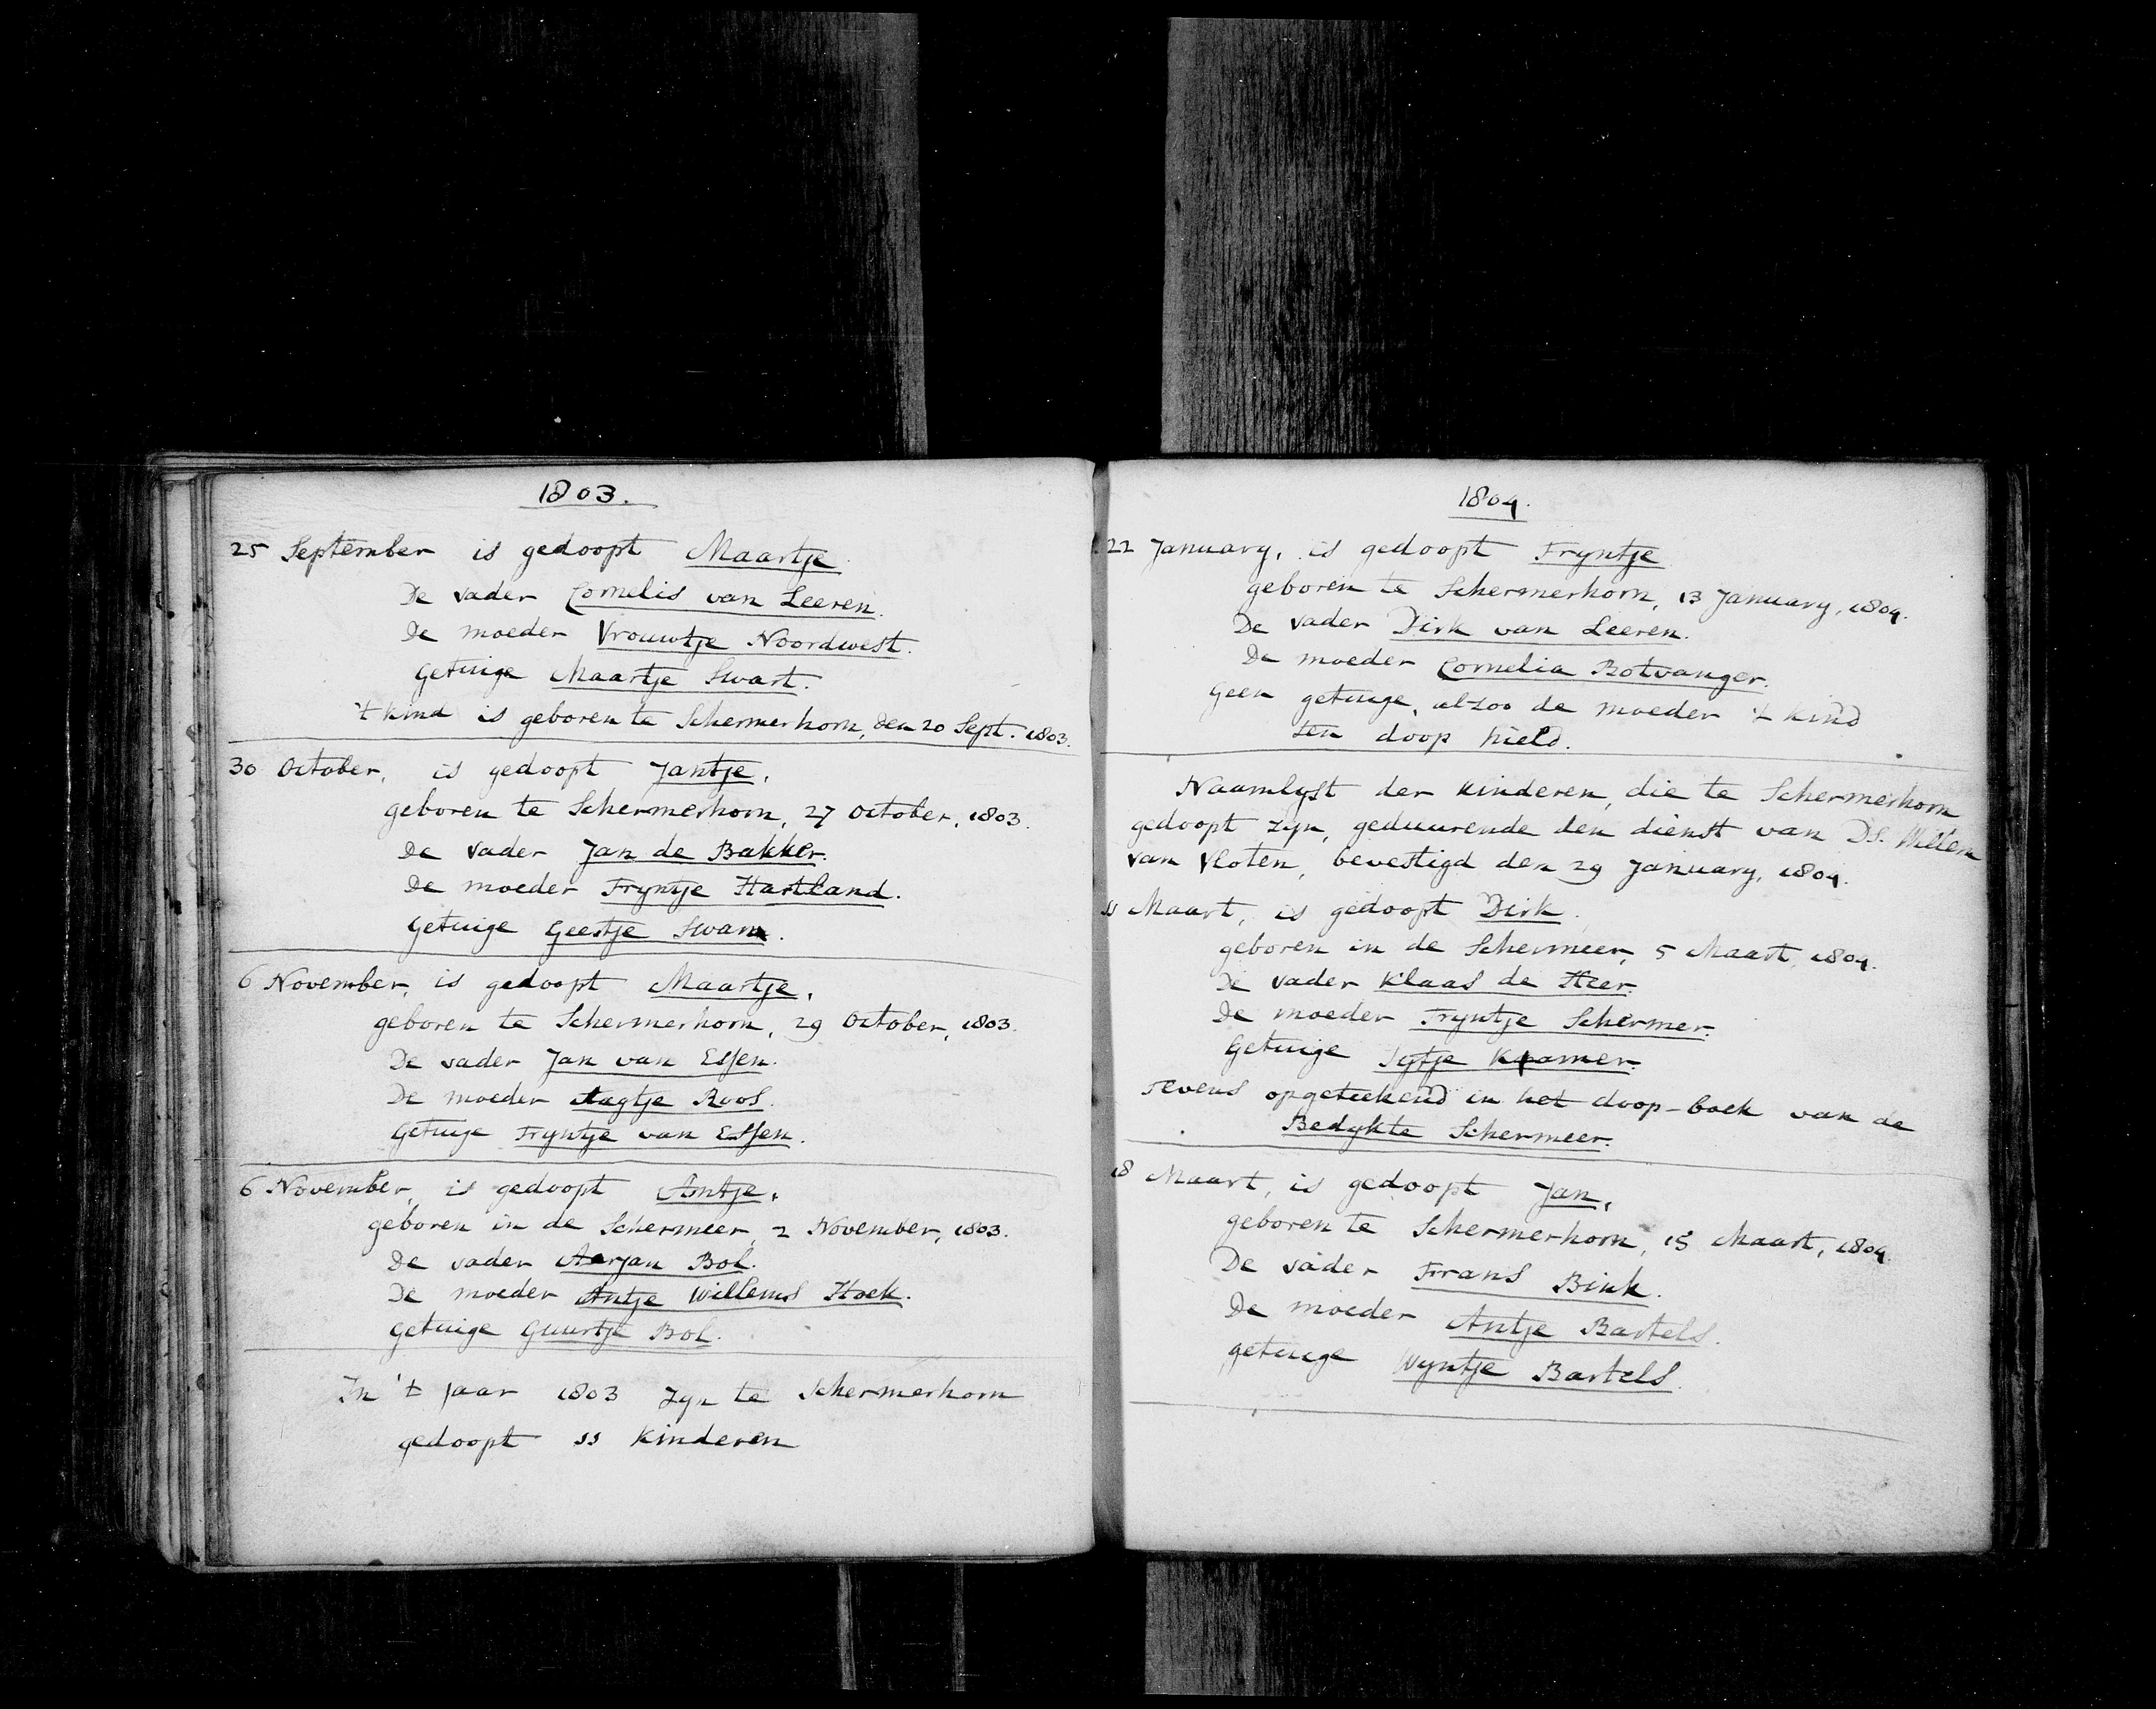 1803.
25 September is gedoopt Maartje.
De vader Cornelis van Leeren.
De moeder Vrouwtje Noordwest.
Getuige Maartje Swart.
't kind is geboren te Schermerhorn, den 20 Sept. 1803.
30 October, is gedoopt Jantje,
geboren te Schermerhorn, 27 October, 1803.
De vader Jan de Bakker.
De moeder Tryntje Hartland.
Getuige Geertje Swan.
6 November, is gedoopt Maartje,
geboren te Schermerhorn, 29 October, 1803.
De vader Jan van Essen.
De moeder Aagtje Roos.
Getuige Tryntje van Essen.
6 November, is gedoopt Antje,
geboren in de Schermeer, 2 November, 1803.
De vader Aarjan Bol.
De moeder Antje Willems Hoek.
Getuige Guurtje Bol.
In 't jaar 1803 zyn te Schermerhorn
gedoopt 11 kinderen
1804.
22 January, is gedoopt Tryntje
geboren te Schermerhorn, 13 January, 1804.
De vader Dirk van Leeren.
De moeder Cornelia Botvanger.
Geen getuige, alzoo de moeder 't kind
ten doop hield.
Naamlyst der kinderen, die te Schermerhorn
gedoopt zyn, geduurende den dienst van Ds. Willem
van Vloten, bevestigd den 29 January, 1804.
11 Maart, is gedoopt Dirk.
geboren in de Schermeer, 5 Maart, 1804.
De vader Klaas de Heer.
De moeder Tryntje Schermer.
Getuige Sytje Kramer.
Tevens opgetekend in het doop-boek van de
Bedykte Schermeer.
18 Maart, is gedoopt Jan,
geboren te Schermerhorn, 15 Maart, 1804.
De vader Frans Bink.
De moeder Antje Bartels.
getuige Wyntje Bartels.